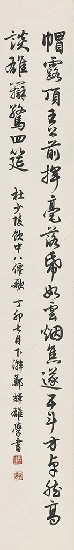 帽露頂王公前揮毫落帋如雲烟焦遂五斗方卓然高
談雄辯驚四筵
杜少陵飲中八僊歌丁卯七月下澣鄭雄學書